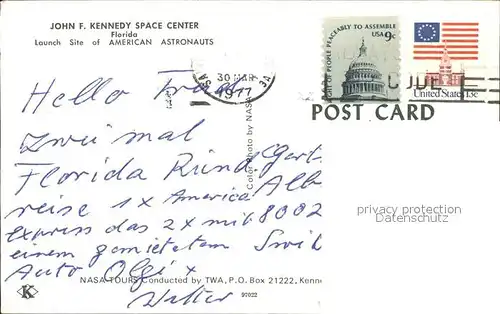 JOHN F. KENNEDY SPACE CENTER
Florida
Launch Site of AMERICAN ASTRONAUTS
RIGHT OF PEOPLE PEACEABLY TO ASSEMBLE
USA 9c
United States 13c
30 MAR
1977
POST CARD
Color Photo by NASA
Hello
Zwei mal
Florida Rund Gert
reise 1x America Alb
express das 2x mit 8002
einem gemietetem
Auto Olgi x
Walter
privacy protection
Datenschutz
NASA TOURS Conducted by TWA, P.O. Box 21222, Kenne
K
97022